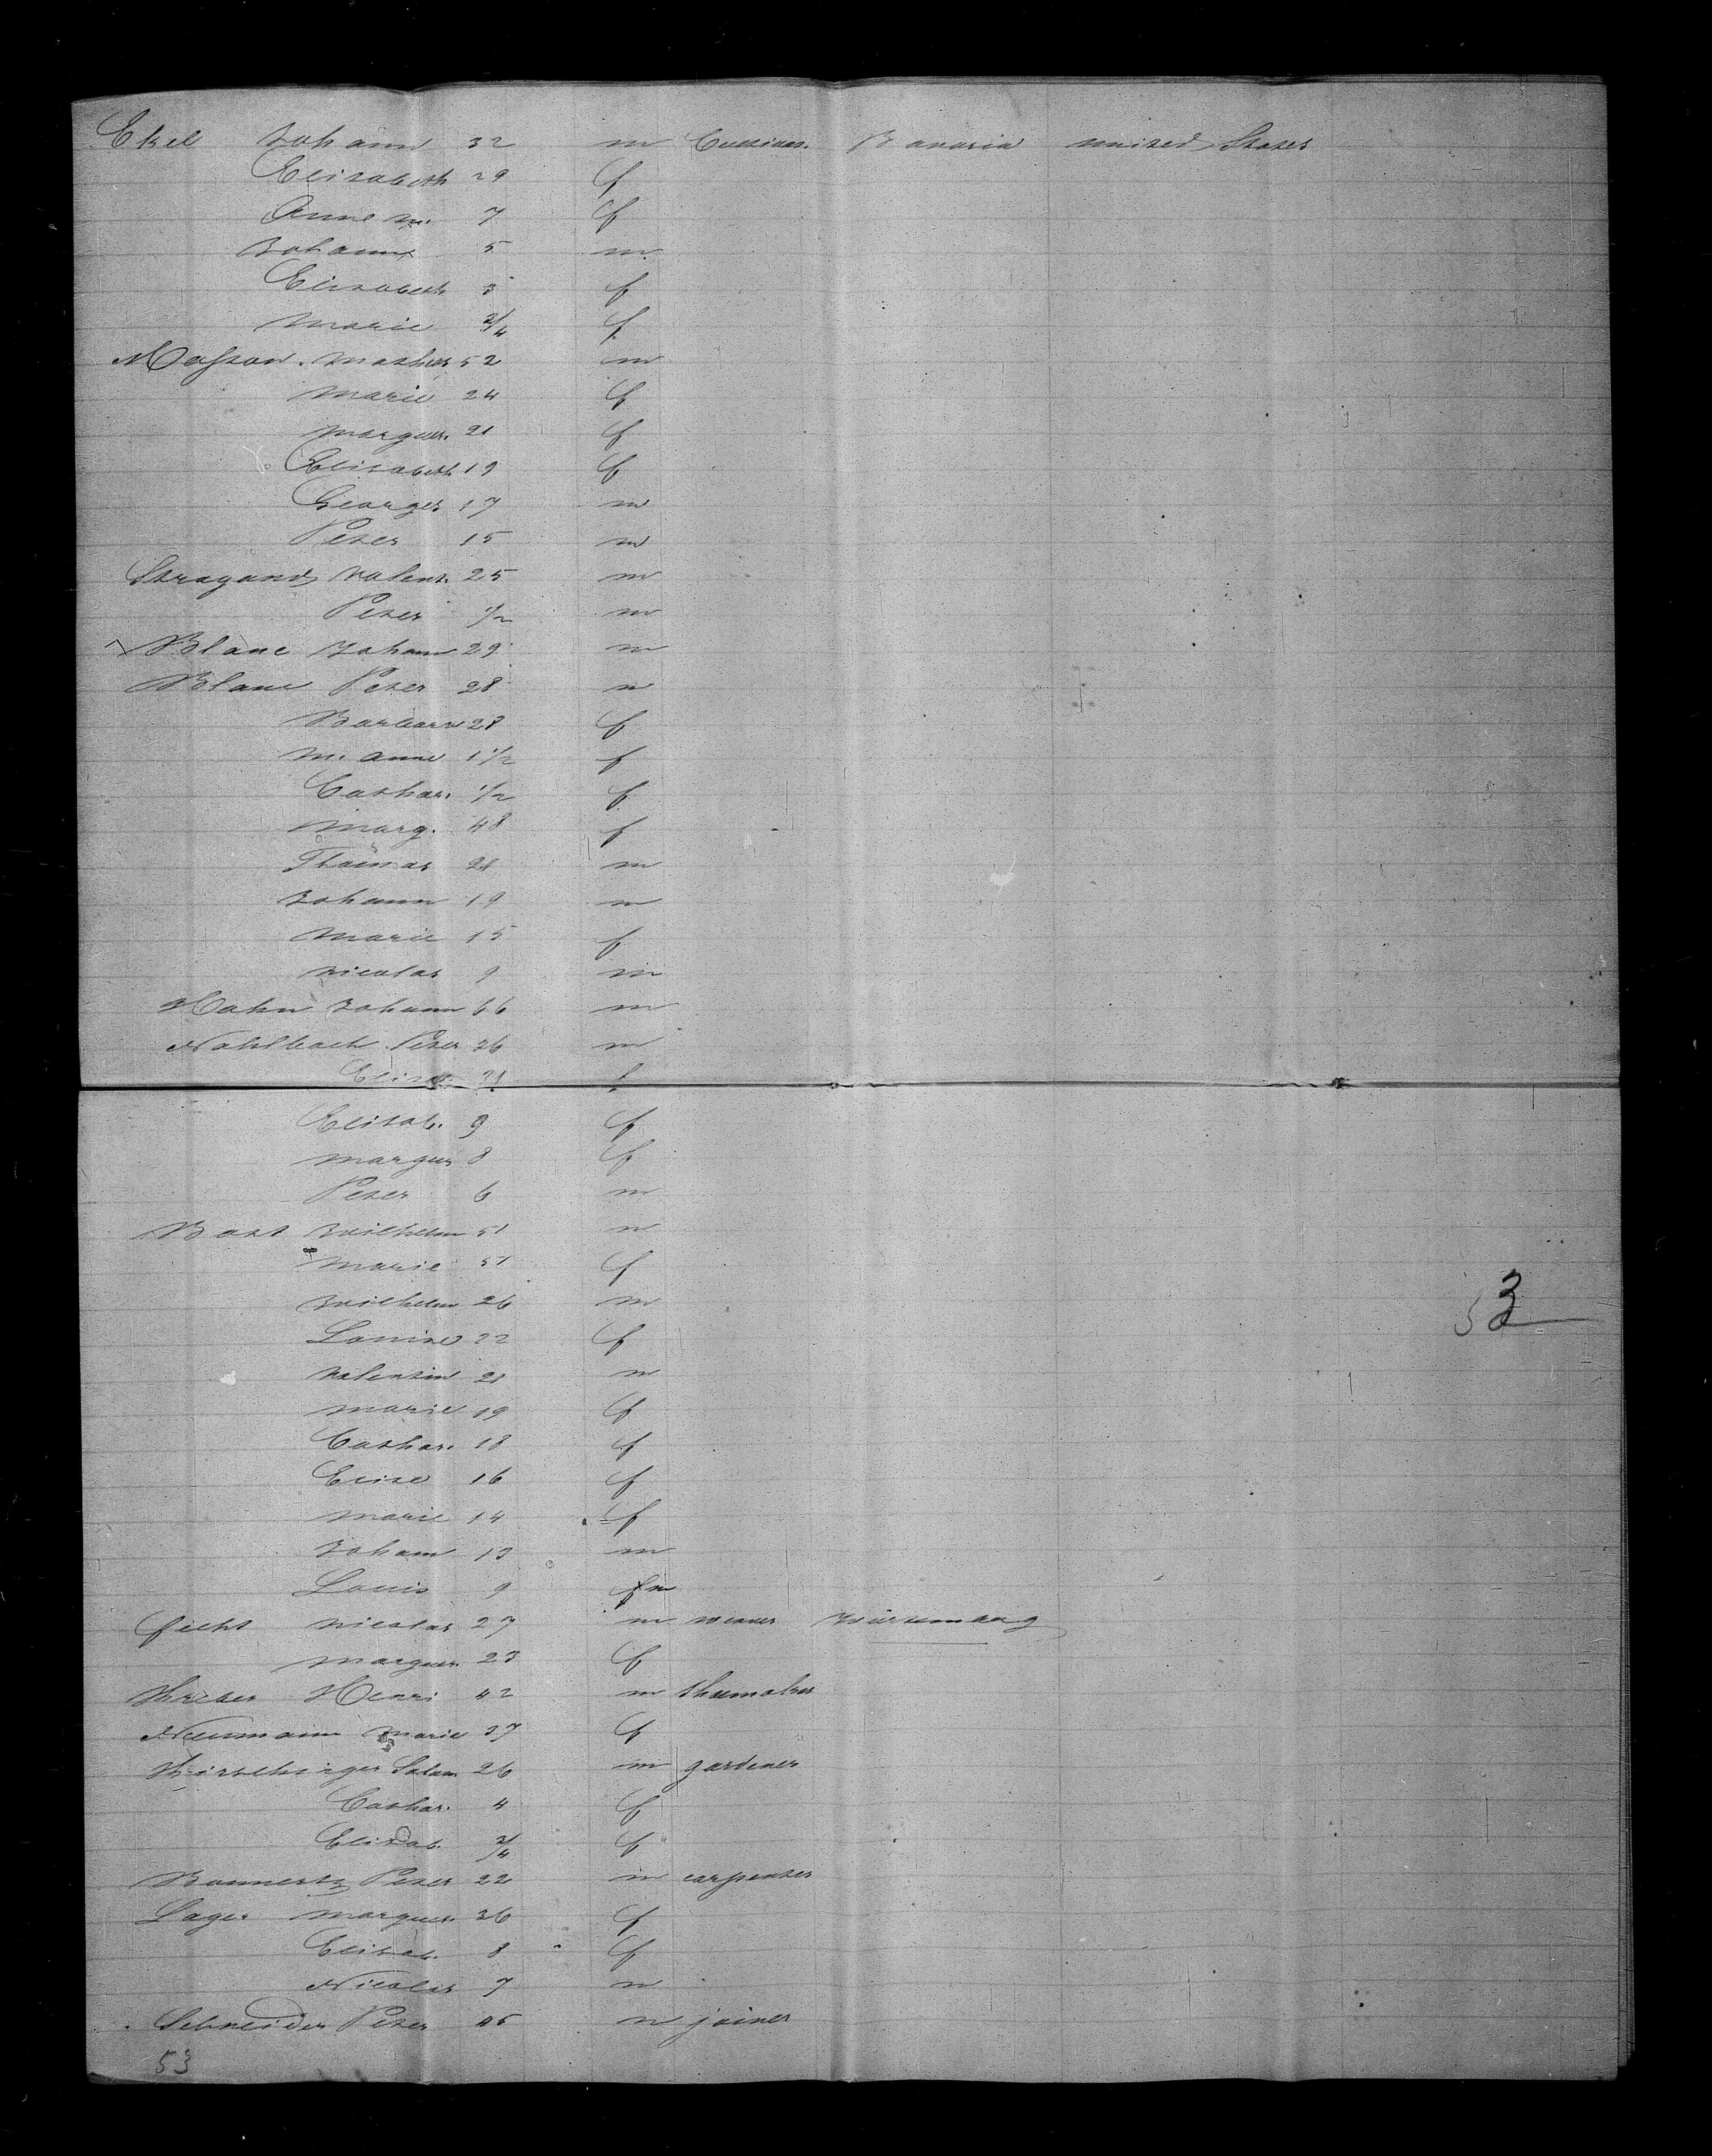 Ekel Johann 32 m Cultivat. Bavaria united States
Elisabeth 29 f
Anne m. 7 f
Johann 5 m
Elisabeth 3 f
Marie 3/4 f
52 m
Marie 24 f
Marguer. 21 f
Elisabeth 19 f
Georges 17 m
Peter 15 m
Stragand Valent. 25 m
Peter 1/2 m
Blanc Johann 29 m
Blanc Peter 28 m
Barbara 28 f
M. Anne 1 1/2 f
Cathar. 1/2 f
Marg. 48 f
Thomas 21 m
Johann 19 m
Marie 15 f
Nicolas 9 m
Hahn Johann 66 m
Nahlbach Peter 36 m
f
Elisab. 9 f
Marguer 8 f
Peter 6 m
Bast Wilhelm 51 m
Marie 51 f
Wilhelm 26 m
Louise 22 f
Valentin 21 m
Marie 19 f
Cathar. 18 f
Elise 16 f
Marie 14 f
Johann 13 m
Louis 9 m
53
Fecht Nicolas 27 m weaver Würtemberg
Marguer. 23 f
Henri 42 m shoemaker
Neumann Marie 37 f
26 m gardener
Cathar. 4 f
Elisab. 3/4 f
Bonnertz Peter 22 m carpenter
Lager Marguer. 36 f
Elisab. 8 f
Nicolas 7 m
Schneider Peter 45 m joiner
53